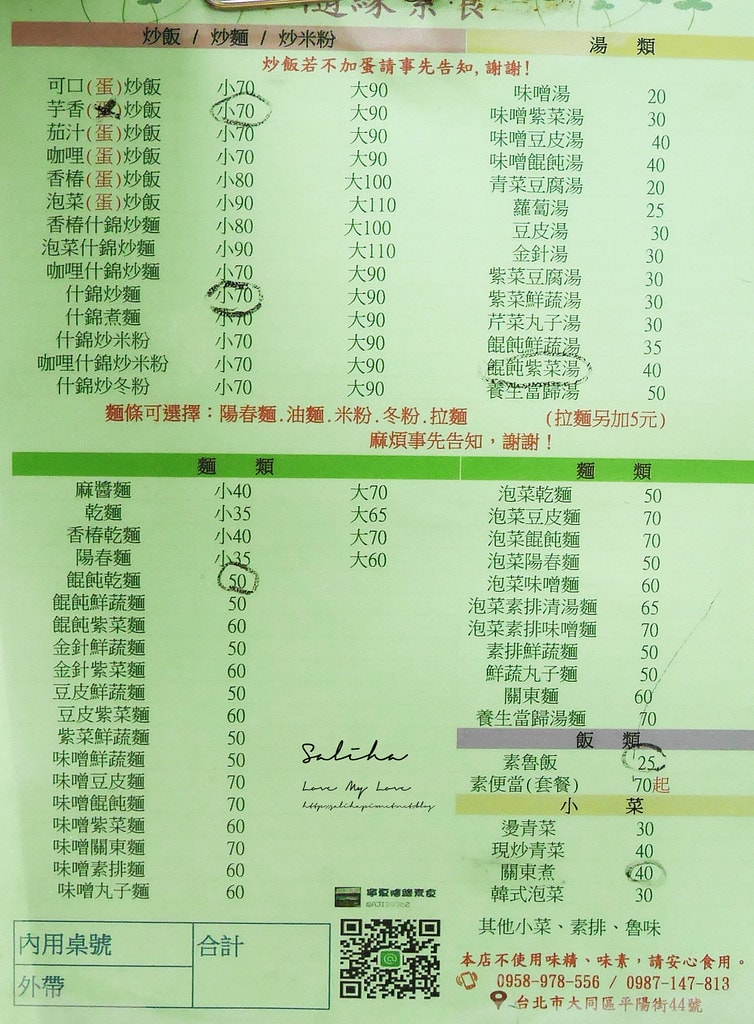 隨緣素食
炒飯 / 炒麵 / 炒米粉
炒飯若不加蛋請事先告知,謝謝!
可口(蛋)炒飯 小70 大90
芋香(蛋)炒飯 小70 大90
茄汁(蛋)炒飯 小70 大90
咖哩(蛋)炒飯 小70 大90
香椿(蛋)炒飯 小80 大100
泡菜(蛋)炒飯 小90 大110
香椿什錦炒麵 小80 大100
泡菜什錦炒麵 小90 大110
咖哩什錦炒麵 小70 大90
什錦炒麵 小70 大90
什錦煮麵 小70 大90
什錦炒米粉 小70 大90
咖哩什錦炒米粉 小70 大90
什錦炒冬粉 小70 大90
湯 類
味噌湯 20
味噌紫菜湯 30
味噌豆皮湯 40
味噌餛飩湯 40
青菜豆腐湯 20
蘿蔔湯 25
豆皮湯 30
金針湯 30
紫菜豆腐湯 30
紫菜鮮蔬湯 30
芹菜丸子湯 30
餛飩鮮蔬湯 35
餛飩紫菜湯 40
養生當歸湯 50
麵條可選擇：陽春麵.油麵.米粉.冬粉.拉麵 (拉麵另加5元)
麻煩事先告知，謝謝！
麵 類
麻醬麵 小40 大70
乾麵 小35 大65
香椿乾麵 小40 大70
陽春麵 小35 大60
餛飩乾麵 50
餛飩鮮蔬麵 50
餛飩紫菜麵 60
金針鮮蔬麵 50
金針紫菜麵 60
豆皮鮮蔬麵 50
豆皮紫菜麵 60
紫菜鮮蔬麵 50
味噌鮮蔬麵 50
味噌豆皮麵 70
味噌餛飩麵 70
味噌紫菜麵 60
味噌關東麵 70
味噌素排麵 60
味噌丸子麵 60
麵 類
泡菜乾麵 50
泡菜豆皮麵 70
泡菜餛飩麵 70
泡菜陽春麵 50
泡菜味噌麵 60
泡菜素排清湯麵 65
泡菜素排味噌麵 70
素排鮮蔬麵 50
鮮蔬丸子麵 50
關東麵 60
養生當歸湯麵 70
飯 類
素魯飯 25
素便當(套餐) 70起
小 菜
燙青菜 30
現炒青菜 40
關東煮 40
韓式泡菜 30
其他小菜、素排、魯味
Saliha
Love My Love
http://saliha.pixnet.net/blog
內用桌號 合計
外帶
本店不使用味精、味素，請安心食用。
0958-978-556 / 0987-147-813
台北市大同區平陽街44號